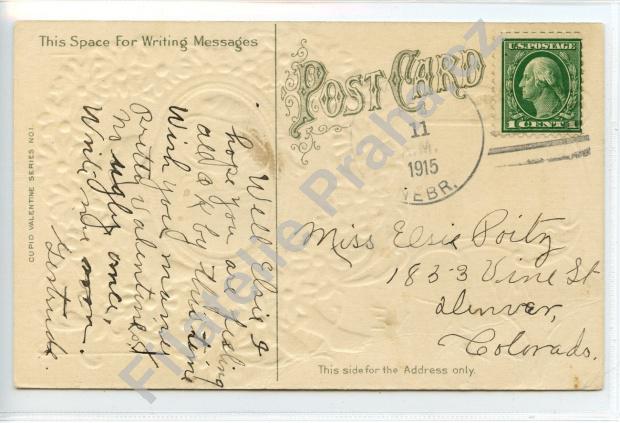 This Space For Writing Messages
POST CARD
U.S. POSTAGE
1 CENT 1
11
M.
1915
NEBR.
CUPID VALENTINE SERIES NO.1.
Well Elsie I
hope you are feeling
old O K by this time
Wish you manie
Pretty valentines &
no ugly once,
Write me soon.
Gertrude.
Miss Elsie Poitz
1833 Vine St
Denver,
Colorado.
This side for the Address only.
Filatelie Praha.cz